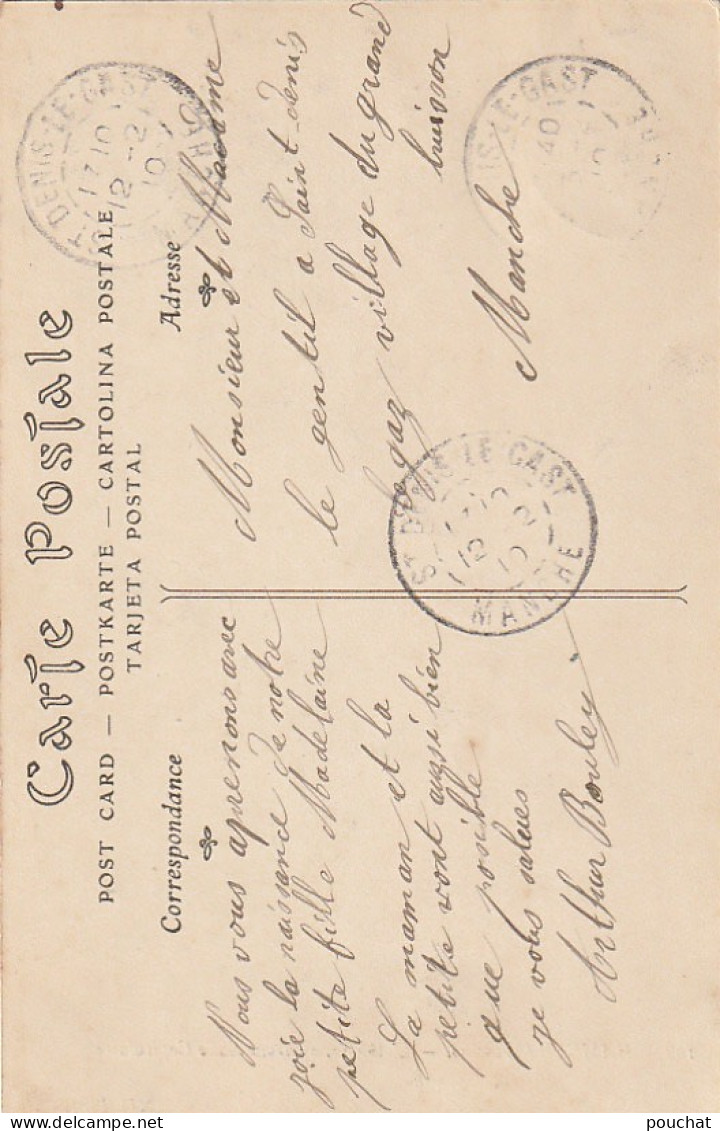 Carte Postale
POST CARD — POSTKARTE — CARTOLINA POSTALE
TARJETA POSTAL
Correspondance
Nous vous aprenons avec
joie la naissance de notre
petite fille Madelaine
La maman et la
petite vont aussi bien
que possible
je vous salues
Arthur Bouley
Adresse
Monsieur et Madame
le gentil a Saint-denis
le gaz village du grand
buisson
Manche
ST DENIS-LE-GAST
17 10
12 -2
10
MANCHE
ST DENIS-LE-GAST
12 2
10
MANCHE
IS-LE-GAST
40
pouchat